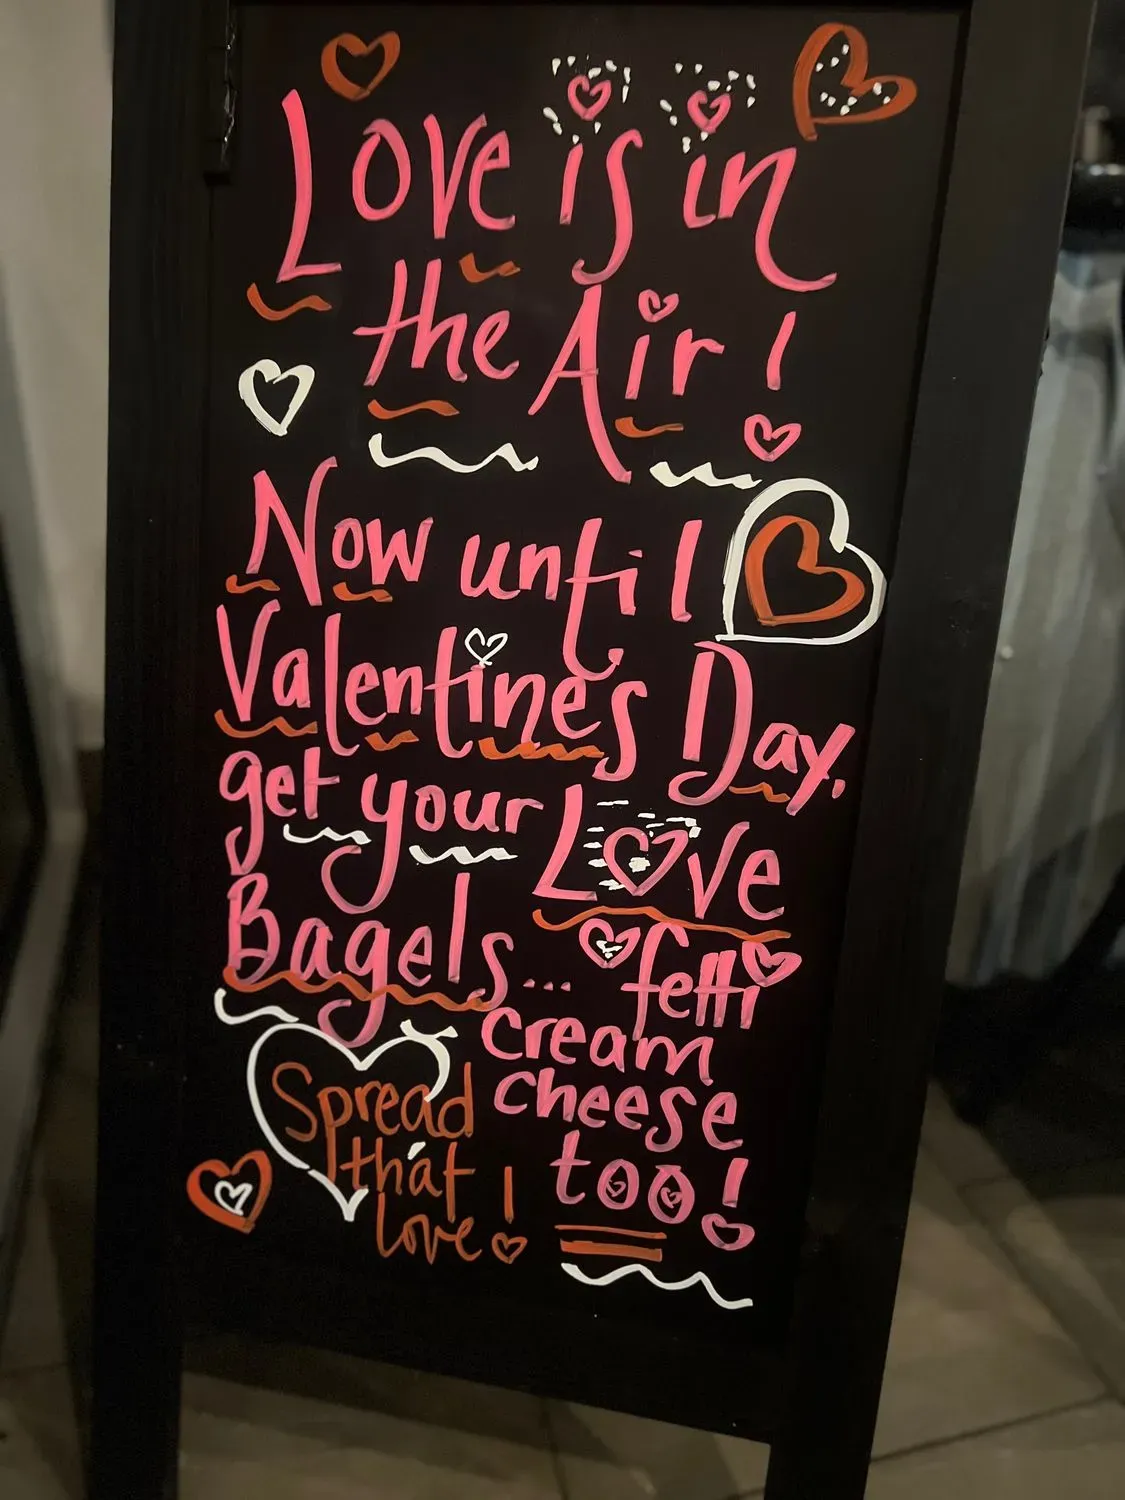 Love is in
the Air!
Now until
Valentines Day,
get your Love
Bagels... fetti
cream
cheese
too!
Spread
that
love!